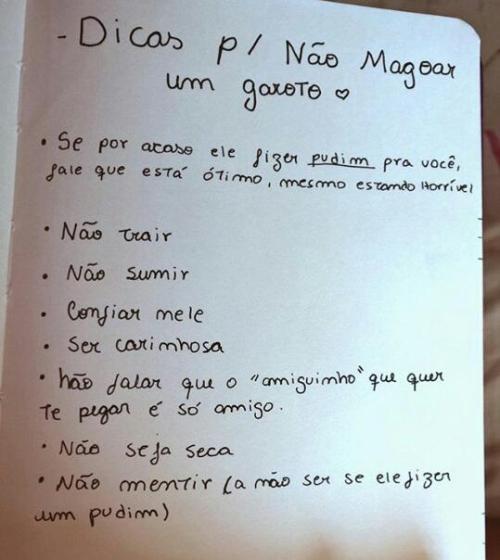 - Dicas p/ Não Magoar
um garoto ♡
• Se por acaso ele fizer pudim pra você,
fale que está ótimo, mesmo estando Horrível
• Não trair
• Não sumir
• Confiar nele
• Ser carinhosa
• não falar que o "amiguinho" que quer
te pegar é só amigo.
• Não seja seca
• Não mentir (a não ser se ele fizer
um pudim)